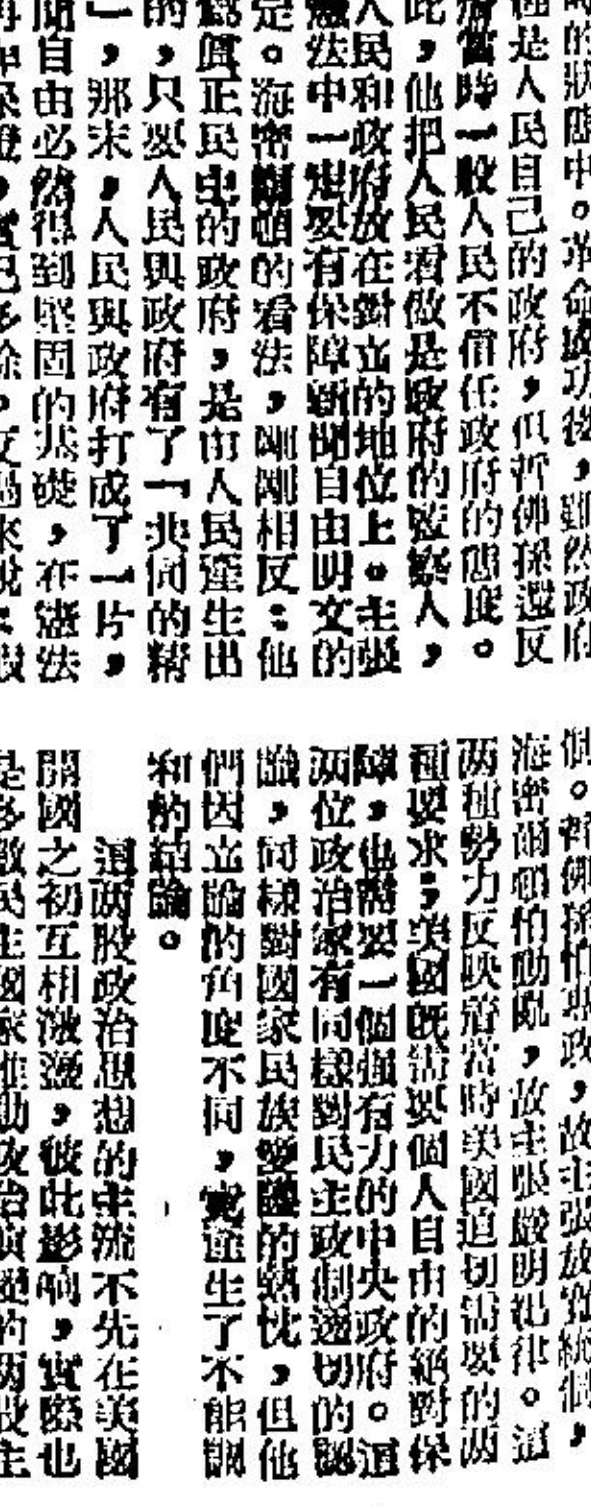 時的狀態中。革命成功後，雖然政府
種是人民自己的政府，但哲佛孫還反
膺當時一般人民不信任政府的態度。
此，他把人民看做是政府的監察人，
人民和政府放在對立的地位上。主張
憲法中一定要有保障新聞自由明文的
定。海密爾頓的看法，剛剛相反：他
為眞正民主的政府，是由人民產生出
的，只要人民與政府有了「共同的精
」，那末，人民與政府打成了一片，
聞自由必然得到堅固的基礎，在憲法
再加保證，實已多餘。反過來說：假
個。哲佛孫怕專政，故主張放寬統個，
海密爾頓怕動亂，故主張嚴明紀律。這
两種勢力反映着當時美國迫切需要的两
種要求；美國既需要個人自由的絕對保
障，也需要一個强有力的中央政府。這
两位政治家有同樣對民主政制透切的認
識，同樣對國家民族愛護的熱忱，但他
們因立論的角度不同，實產生了不能調
和的結論。
這两股政治思想的主流不先在美國
開國之初互相激盪，彼此影响，實際也
是多數民主國家推動政治演變的两股主